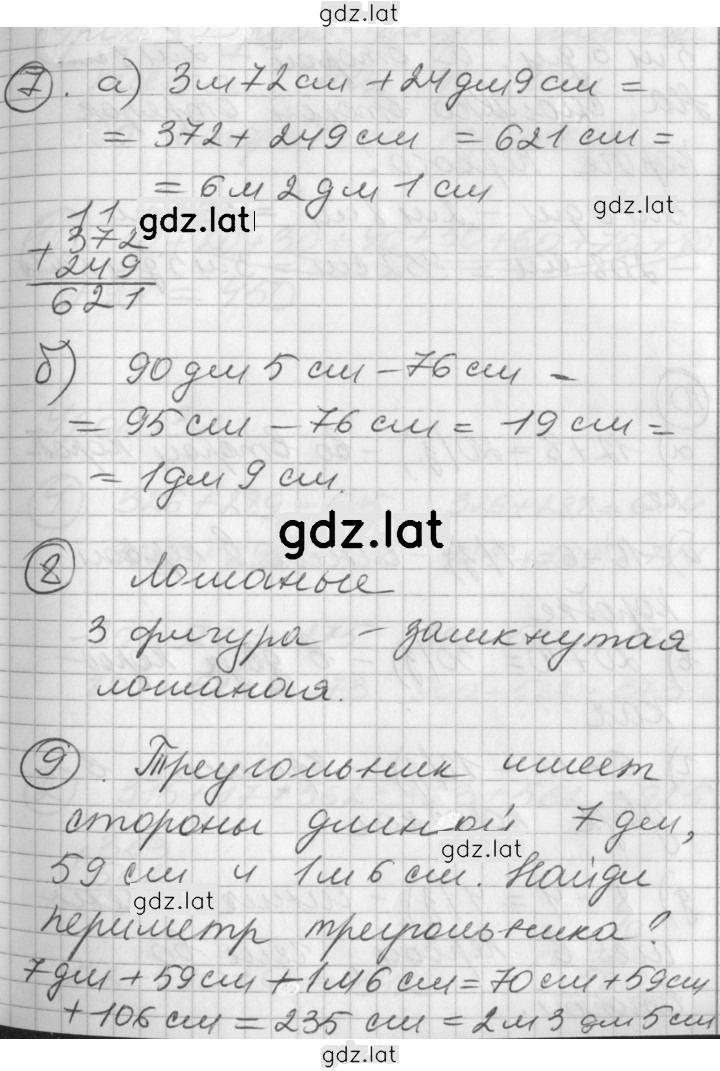 gdz.lat
7. а) 3м72см + 24дм9см =
= 372 + 249см = 621см =
= 6м 2дм 1см
gdz.lat
11
gdz.lat
+372
249
621
б) 90дм 5см - 76см -
= 95см - 76см = 19см =
= 1дм 9см.
gdz.lat
8 Ломаные
3 фигура - замкнутая
ломаная.
9. Треугольник имеет
стороны длиной 7дм,
gdz.lat
59см и 1м6см. Найди
gdz.lat
периметр треугольника?
7дм + 59см + 1м6см = 70см + 59см
+ 106см = 235см = 2м3дм5см
gdz.lat